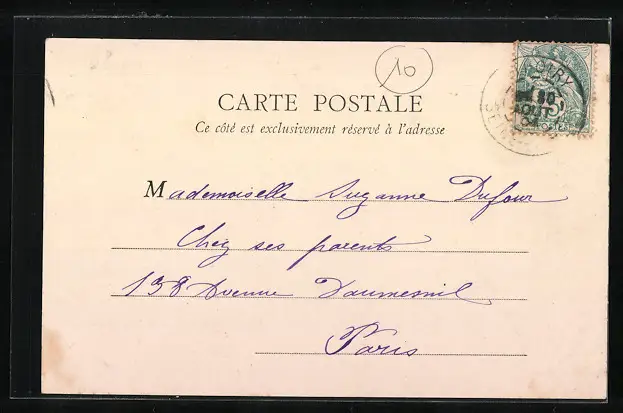 10
CARTE POSTALE
Ce côté est exclusivement réservé à l'adresse
Mademoiselle Suzanne Dufour
Chez ses parents
138 Avenue Daumesnil
Paris
AOUT